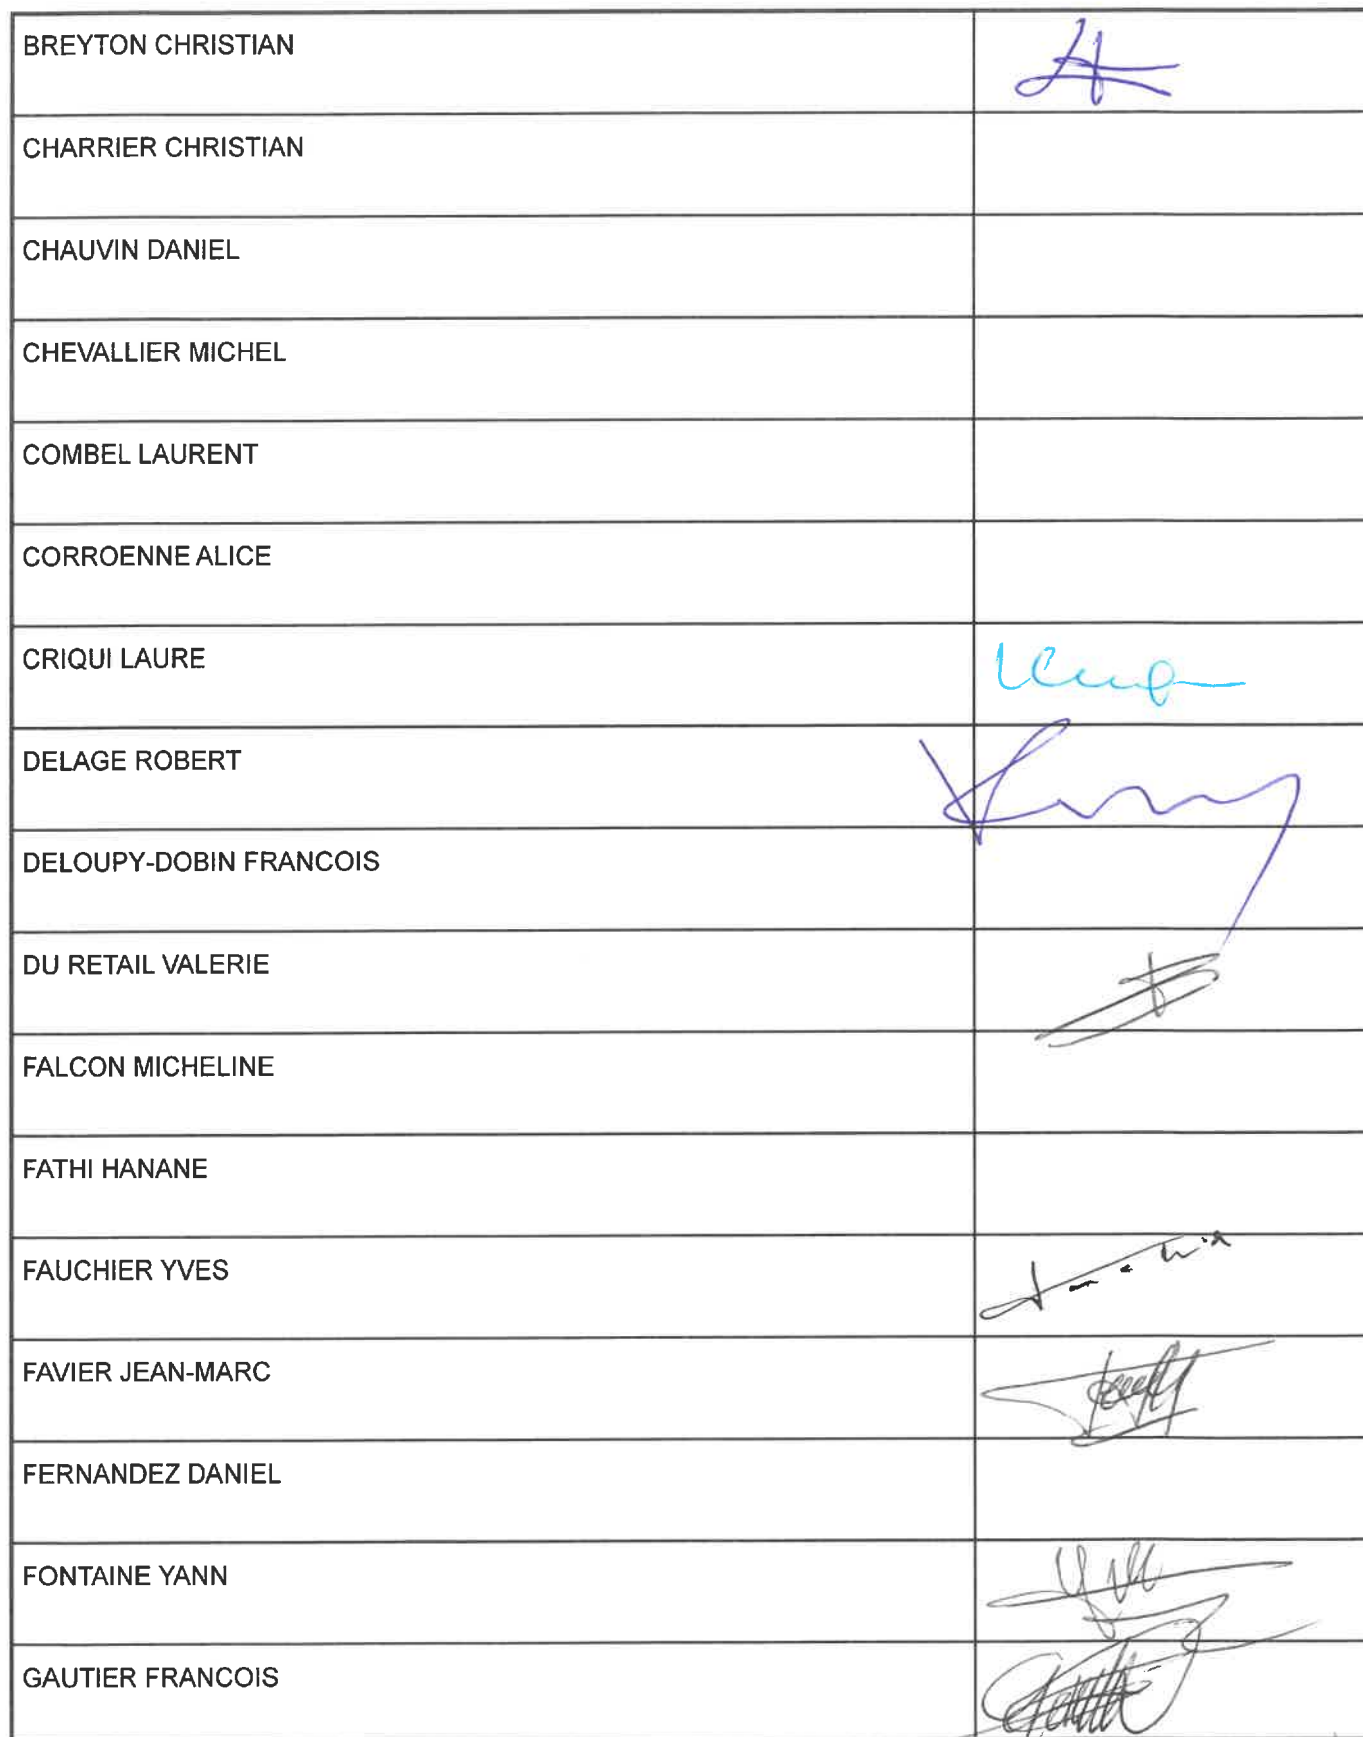 BREYTON CHRISTIAN
CHARRIER CHRISTIAN
CHAUVIN DANIEL
CHEVALLIER MICHEL
COMBEL LAURENT
CORROENNE ALICE
CRIQUI LAURE
DELAGE ROBERT
DELOUPY-DOBIN FRANCOIS
DU RETAIL VALERIE
FALCON MICHELINE
FATHI HANANE
FAUCHIER YVES
FAVIER JEAN-MARC
FERNANDEZ DANIEL
FONTAINE YANN
GAUTIER FRANCOIS